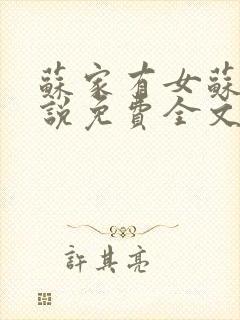 蘇家有女蘇
說免費全文
許其亮